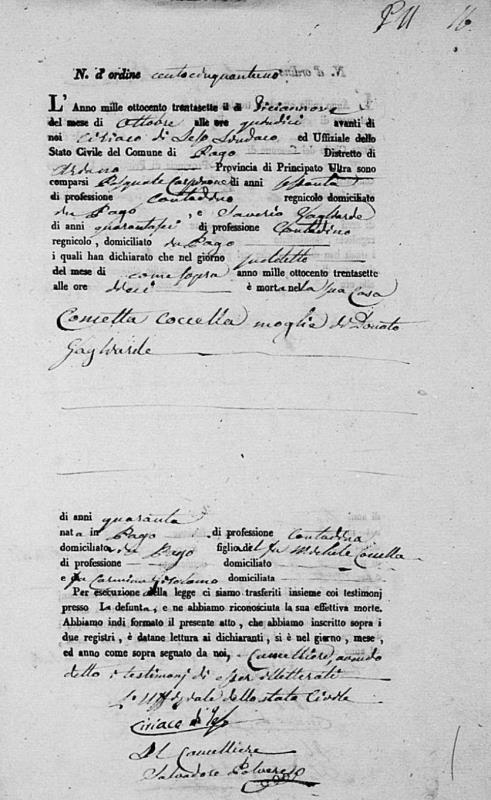 16
N. d'ordine centocinquantuno
L'Anno mille ottocento trentasette il dì Diciannove
del mese di Ottobre alle ore quindici avanti di
noi Ciriaco di Leso Sindaco ed Uffiziale dello
Stato Civile del Comune di Pago Distretto di
Provincia di Principato Ultra sono
comparsi Pasquale di anni sessanta
di professione Contadino regnicolo domiciliato
in Pago, e Saverio Gagliarde
di anni quarantasei di professione Contadino
regnicolo, domiciliato in Pago
i quali han dichiarato che nel giorno suddetto
del mese di come sopra anno mille ottocento trentasette
alle ore dieci è morta nella sua Casa
Cometta Coccella moglie di Donato
Gagliarde
di anni quaranta
nata in Pago di professione Contadina
domiciliata in Pago figlia del fu Michele Coccella
di professione domiciliato
e fu Carmina domiciliata
Per esecuzione della legge ci siamo trasferiti insieme coi testimonj
presso La defunta, e ne abbiamo riconosciuta la sua effettiva morte.
Abbiamo indi formato il presente atto, che abbiamo inscritto sopra i
due registri, è datane lettura ai dichiaranti, si è nel giorno, mese,
ed anno come sopra segnato da noi, e Cancelliere, avendo
detto i testimonj di esser illetterati
L'Uffiziale dello stato Civile
Ciriaco di Leso
Il Cancelliere
Salvadore Polvere